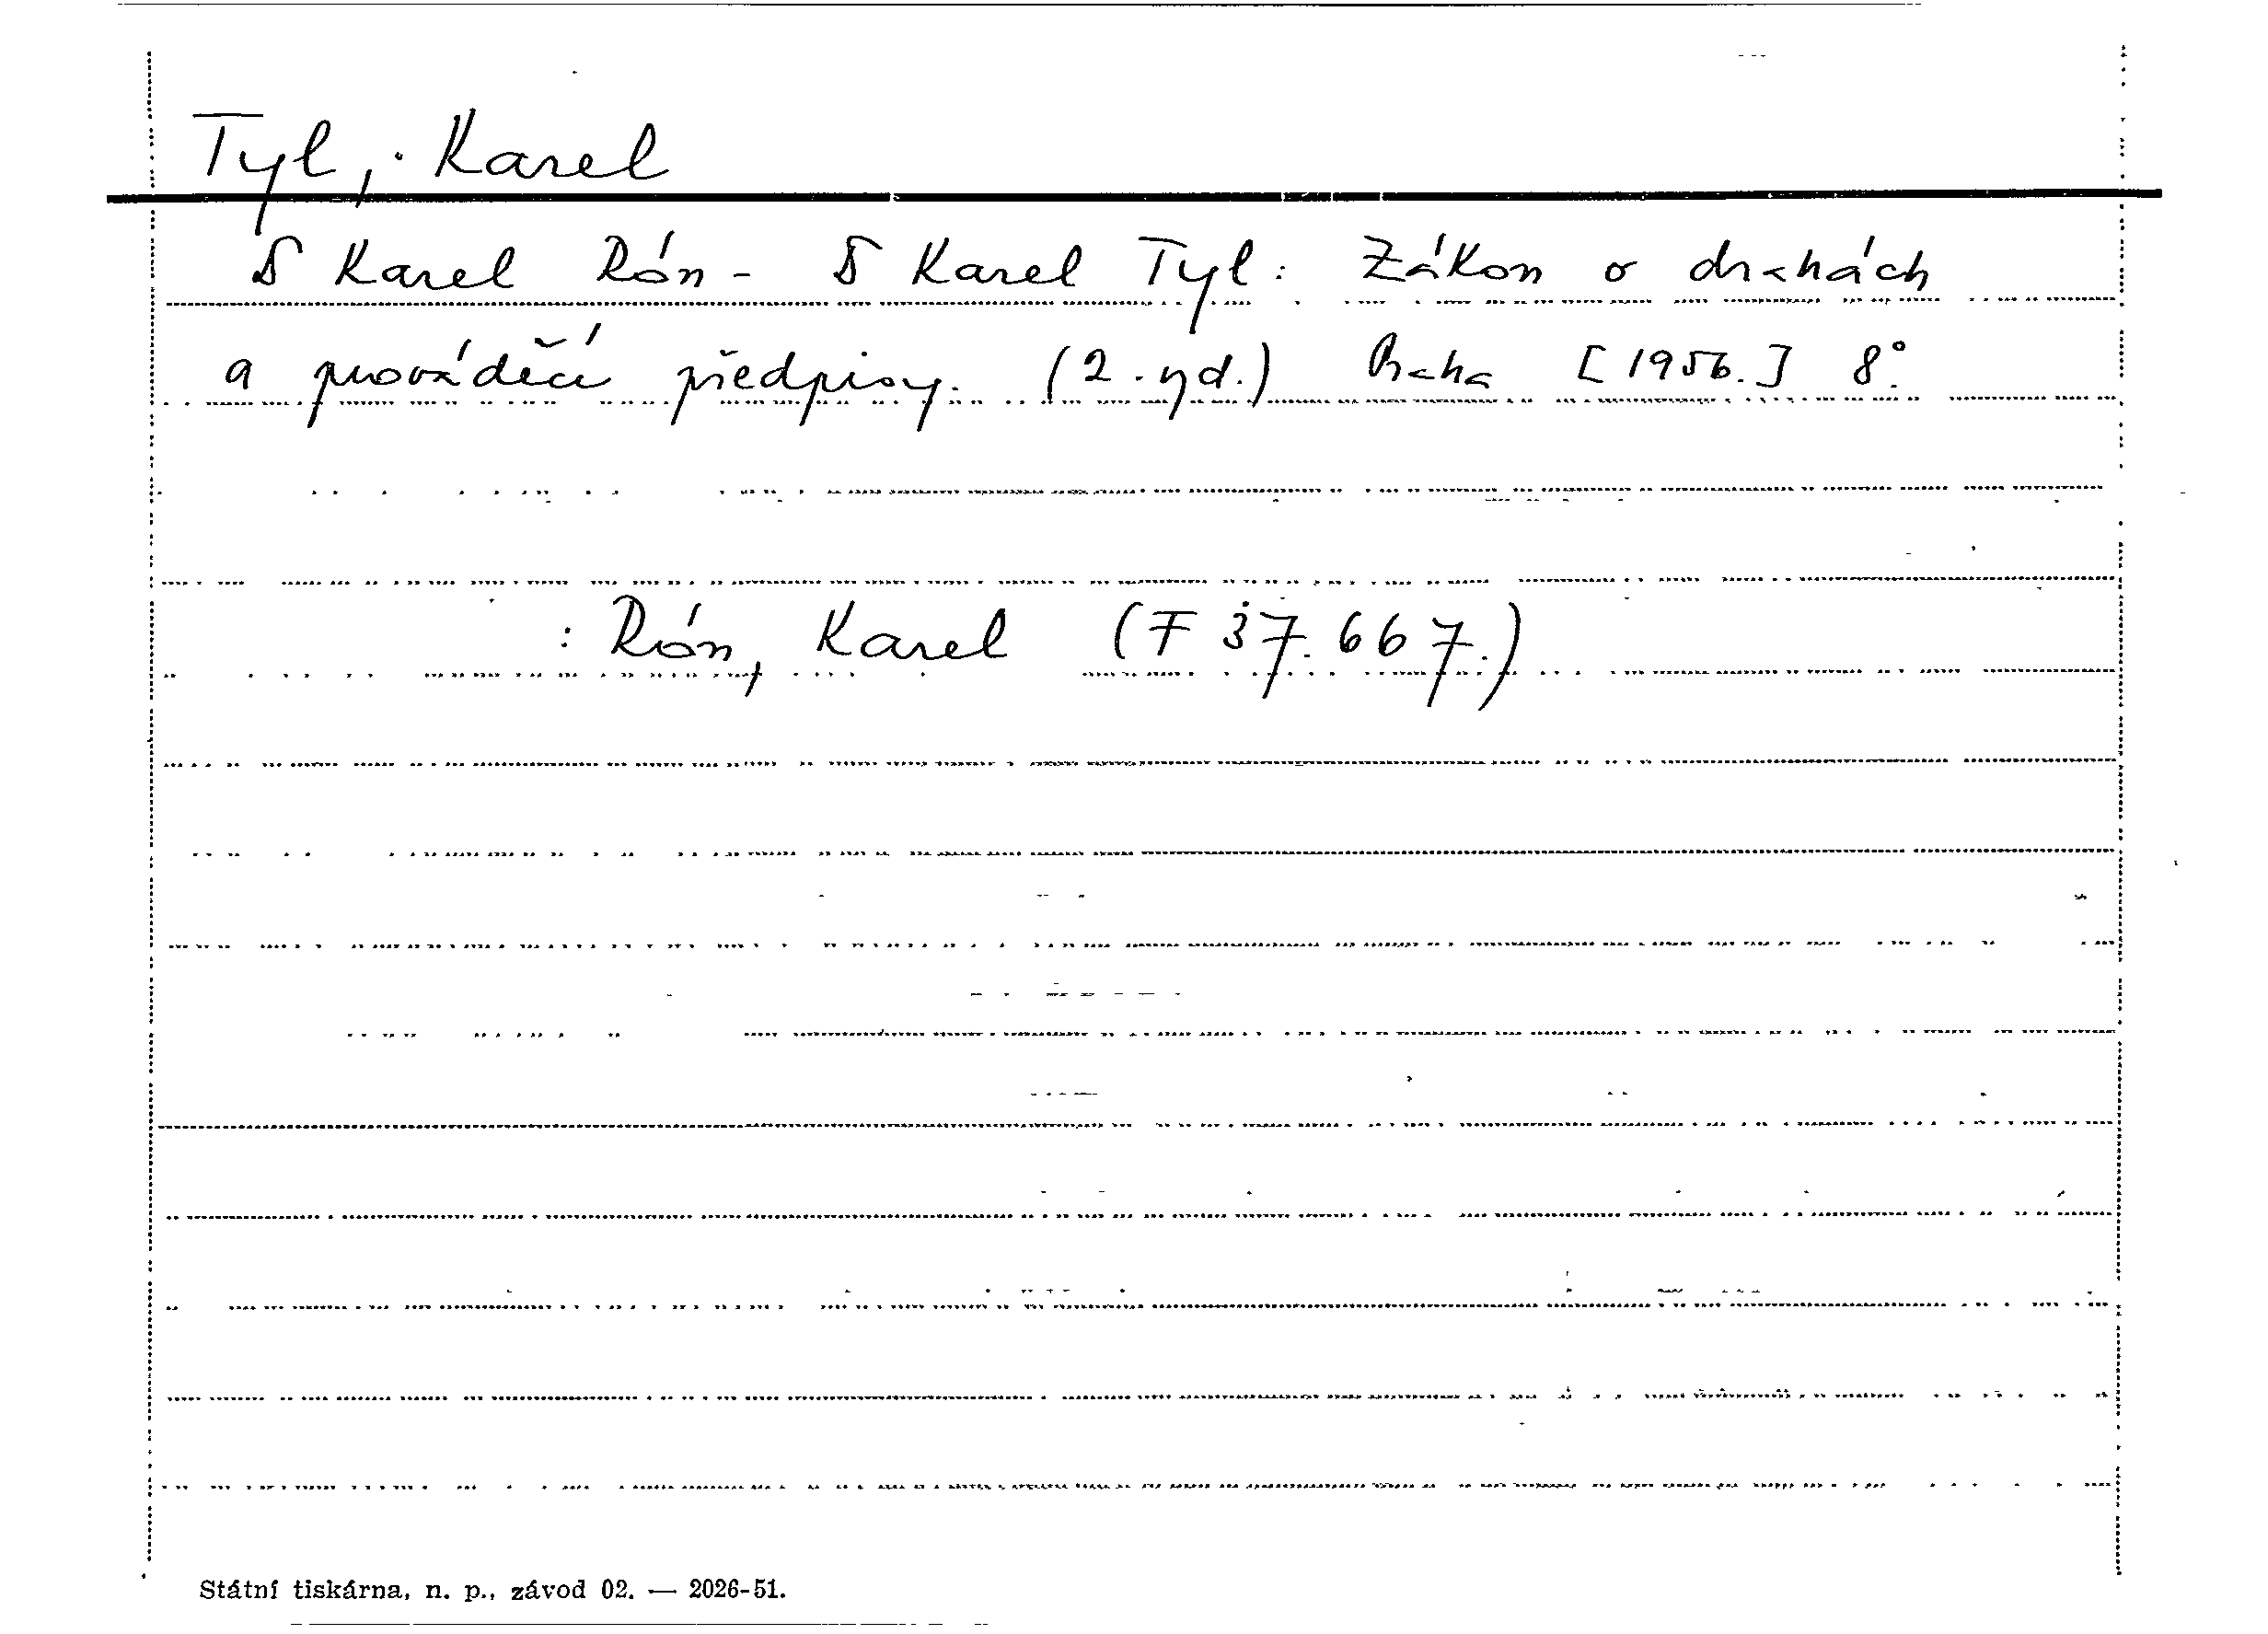 Tyl, Karel
Karel Rón - Karel Tyl: Zákon o drahách
a prováděcí předpisy. (2. vyd.) Praha [1956.] 8°.
: Rón, Karel (F 37.667.)
Státní tiskárna, n. p., závod 02. — 2026-51.